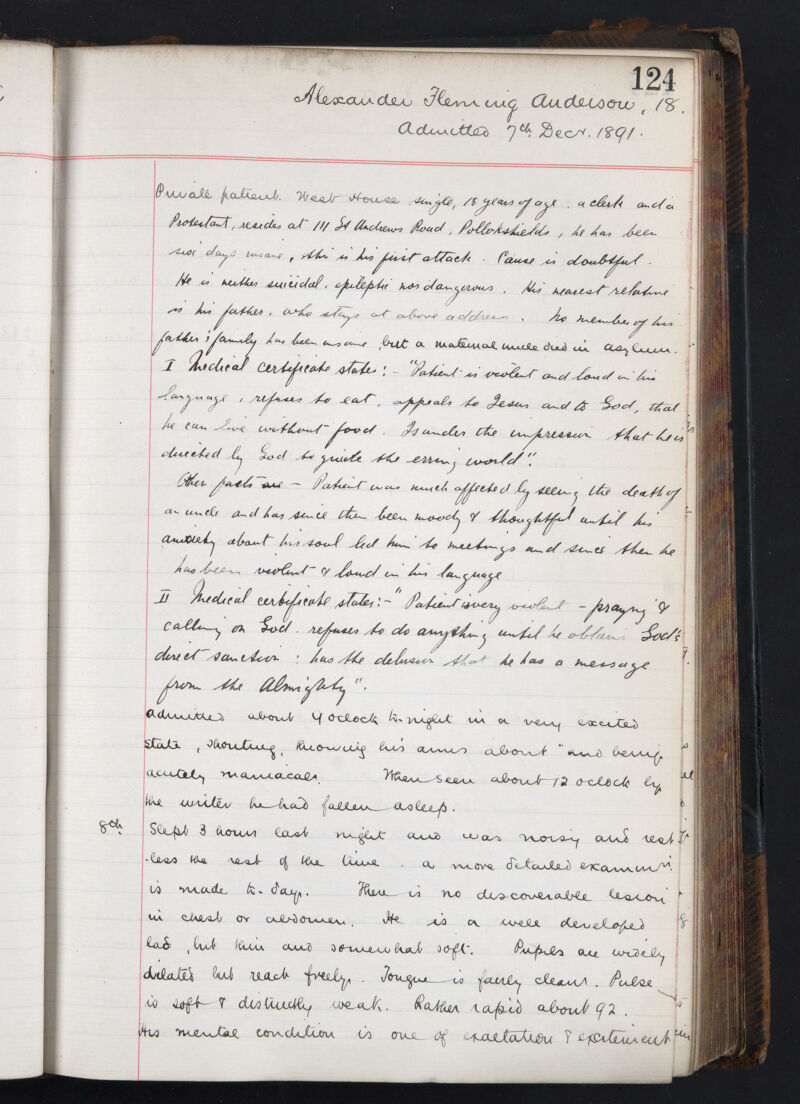 124
Alexander Fleming Anderson, 18.
Admitted 7th Decr. 1891.
Private patient. West House. single, 18 years of age. a clerk and a
Protestant, resides at 111 St Andrews Road, Pollokshields, he has been
six days insane, this is his first attack. Cause is doubtful.
He is neither suicidal. epileptic nor dangerous. His nearest relative
is his father. who stays at above address. No member of his
father's family has been insane but a maternal uncle died in asylum.
I Medical certificate states:- "Patient is violent and loud in his
language, refuses to eat, appeals to Jesus and to God, that
he can live without food. Is under the impression that he is
directed by God to guide the erring world".
Other facts are - Patient was much affected by seeing the death of
an uncle and has since then been moody & thoughtful until his
anxiety about his soul led him to meetings and since then he
has been violent & loud in his language
II Medical certificate states:- "Patient is very violent - praying &
calling on God. refuses to do anything until he obtains God's
direct sanction: has the delusion that he has a message
from the Almighty".
Admitted about oclock to-night in a very excited
state, shouting, throwing his arms about and being
acutely maniacal. When seen about 12 oclock by
the writer he had fallen asleep.
8th Slept 3 hours last night and was noisy and rest
-less the rest of the time. a more detailed examinn.
is made to-day. There is no discoverable lesion
in chest or abdomen. He is a well developed
lad, but thin and somewhat soft. Pupils are widely
dilated but react freely. Tongue is fairly clean. Pulse
is soft & distinctly weak. Rather rapid about 92.
His mental condition is one of exaltation & excitement